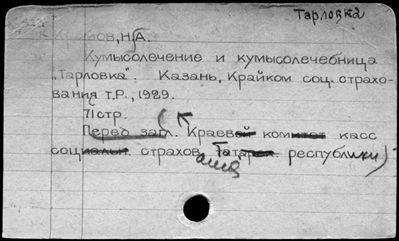 Тарловка
Н.А.
Кумысолечение и кумысолечебница
„Тарловка". Казань, Крайком соц. страхо-
вания т.Р., 1929.
71 стр.
Перед загл. Краевой комитет касс
социальн. страхов. Татарск. республики)